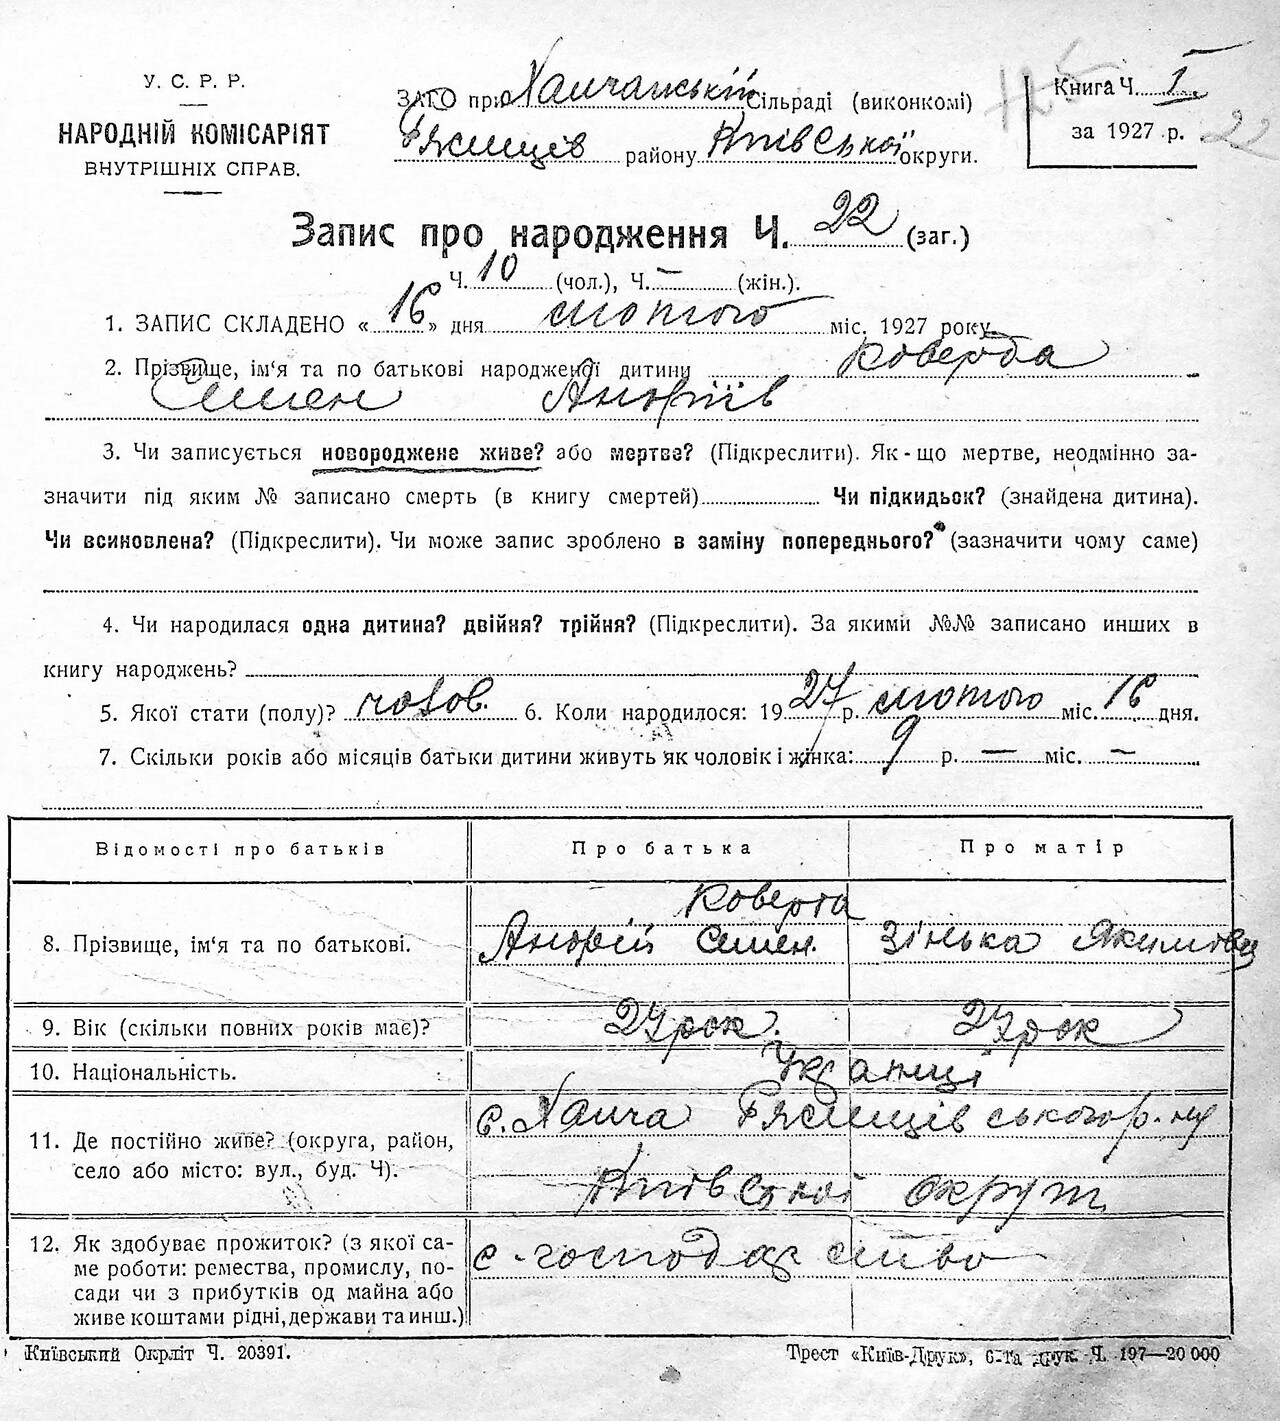 У. С. Р. Р.
НАРОДНІЙ КОМІСАРІЯТ
ВНУТРІШНІХ СПРАВ.
ЗАГС при Ханчанській Сільраді (виконкомі)
Ржищів району Київської округи.
Книга Ч. I
за 1927 р.
22
Запис про народження Ч. 22 (заг.)
Ч. 10 (чол.), Ч. — (жін.).
1. ЗАПИС СКЛАДЕНО « 16 » дня лютого міс. 1927 року.
2. Прізвище, ім'я та по батькові народженої дитини Коверда
Семен Андріїв
3. Чи записується новороджене живе? або мертве? (Підкреслити). Як-що мертве, неодмінно за-
значити під яким № записано смерть (в книгу смертей) Чи підкидьок? (знайдена дитина).
Чи всиновлена? (Підкреслити). Чи може запис зроблено в заміну попереднього? (зазначити чому саме)
4. Чи народилася одна дитина? двійня? трійня? (Підкреслити). За якими №№ записано инших в
книгу народжень?
5. Якої стати (полу)? чолов. 6. Коли народилося: 1927 р. лютого міс. 16 дня.
7. Скільки років або місяців батьки дитини живуть як чоловік і жінка: 9 р. — міс. —
Відомості про батьків Про батька Про матір
Коверда
8. Прізвище, ім'я та по батькові. Андрій Семен. Зінька Якимовна
9. Вік (скільки повних років має)? 27 рок. 27 рок
10. Національність. Українці
11. Де постійно живе? (округа, район, с. Ханча Ржищівського р-ну
село або місто: вул., буд. Ч). Київської округи
12. Як здобуває прожиток? (з якої са- с-господарство
ме роботи: ремества, промислу, по-
сади чи з прибутків од майна або
живе коштами рідні, держави та инш.)
Київський Окрліт Ч. 20391.
Трест «Київ-Друк», 6-та друк. Ч. 197—20 000